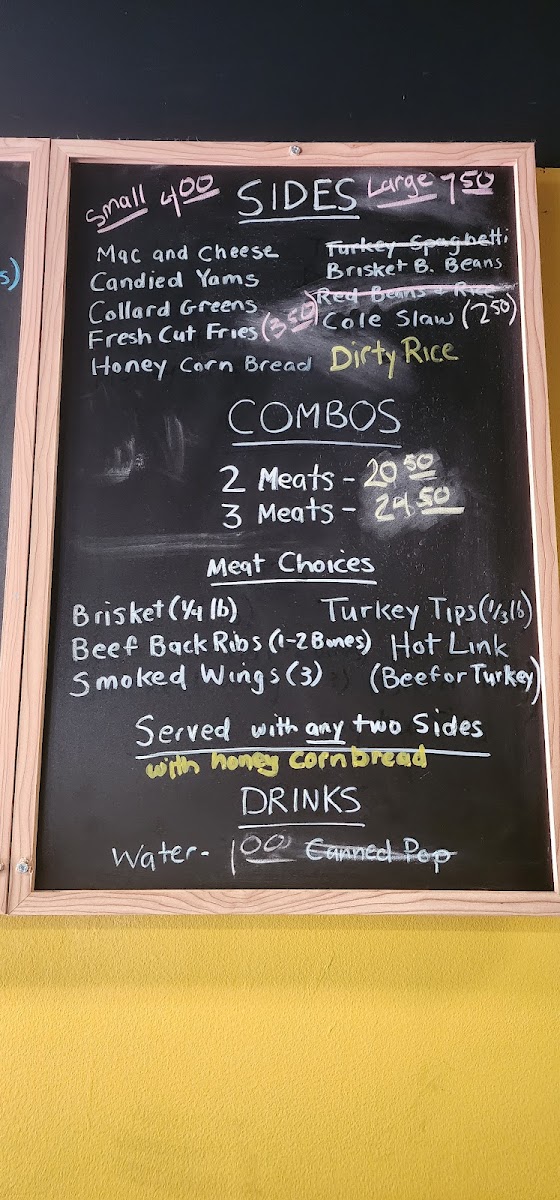 Small 4.00 SIDES Large 7.50
Mac and Cheese
Candied Yams
Collard Greens
Fresh Cut Fries (3.50)
Honey Corn Bread
Turkey Spaghetti
Brisket B. Beans
Red Beans + Rice
Cole Slaw (2.50)
Dirty Rice
COMBOS
2 Meats - 20.50
3 Meats - 24.50
Meat Choices
Brisket (1/4 lb)
Beef Back Ribs (1-2 Bones)
Smoked Wings (3)
Turkey Tips (1/3 lb)
Hot Link
(Beef or Turkey)
Served with any two Sides
with honey cornbread
DRINKS
Water - 1.00 Canned Pop
s)